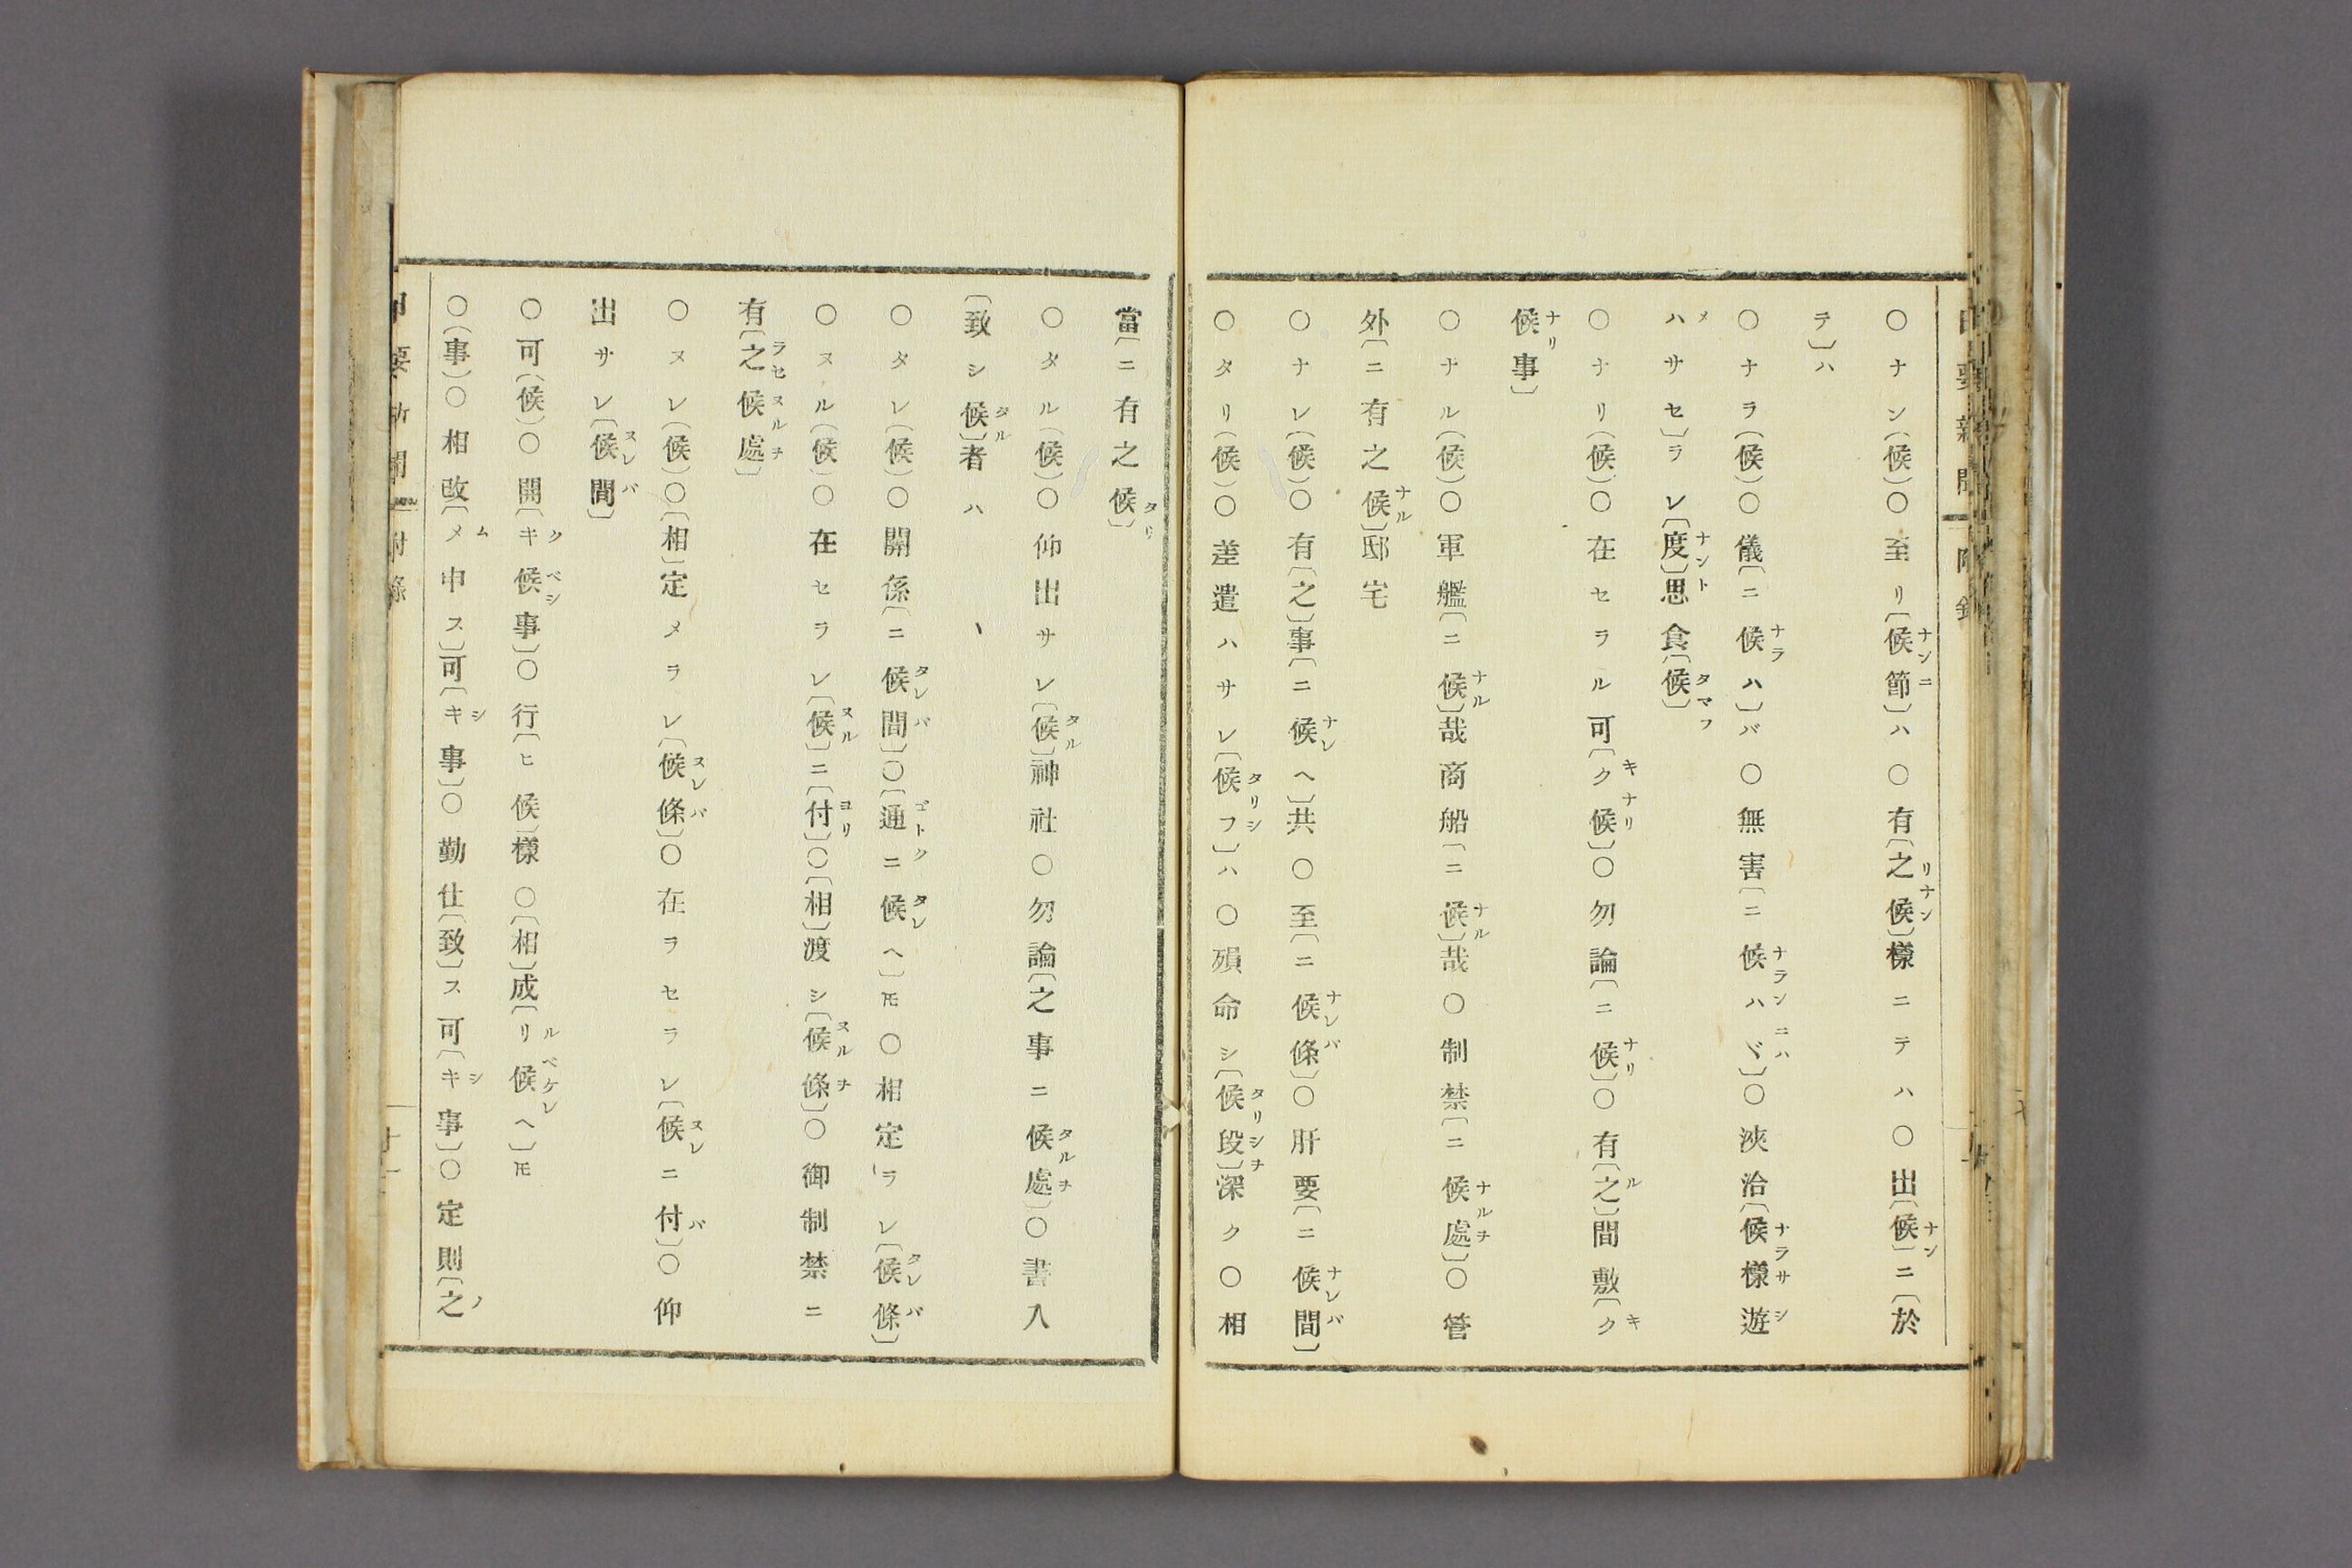 ○ナン(候)○至リ〔候節〕ハ○有〔之候〕樣ニテハ○出〔候〕ニ〔於
テ〕ハ
○ナラ(候)○儀〔ニ候ハ〕バ○無害〔ニ候ハヾ〕○浹洽〔候樣遊
ハサセ〕ラレ〔度〕思食〔候〕
○ナリ(候)○在セラル可〔ク候〕○勿論〔ニ候〕○有〔之〕間敷〔ク
候事〕
○ナル(候)○軍艦〔ニ候〕哉商船〔ニ候〕哉○制禁〔ニ候處〕○管
外〔ニ有之候〕邸宅
○ナレ(候)○有〔之〕事〔ニ候ヘ〕共○至〔ニ候條〕○肝要〔ニ候間〕
○タリ(候)○差遣ハサレ〔候フ〕ハ○殞命シ〔候段〕深ク○相
當〔ニ有之候〕
○タル(候)○仰出サレ〔候〕神社○勿論〔之事ニ候處〕○書入
〔致シ候〕者ハ
○タレ(候)○關係〔ニ候間〕○〔通ニ候ヘ〕𪜈○相定ラレ〔候條〕
○ヌル(候)○在セラレ〔候〕ニ〔付〕○〔相〕渡シ〔候條〕○御制禁ニ
有〔之候處〕
○ヌレ(候)○〔相〕定メラレ〔候條〕○在ヲセラレ〔候ニ付〕○仰
出サレ〔候間〕
○可(候)○開〔キ候事〕○行〔ヒ候〕樣○〔相〕成〔リ候ヘ〕𪜈
○(事)○相改〔メ申ス〕可〔キ事〕○勤仕〔致〕ス可〔キ事〕○定則〔之